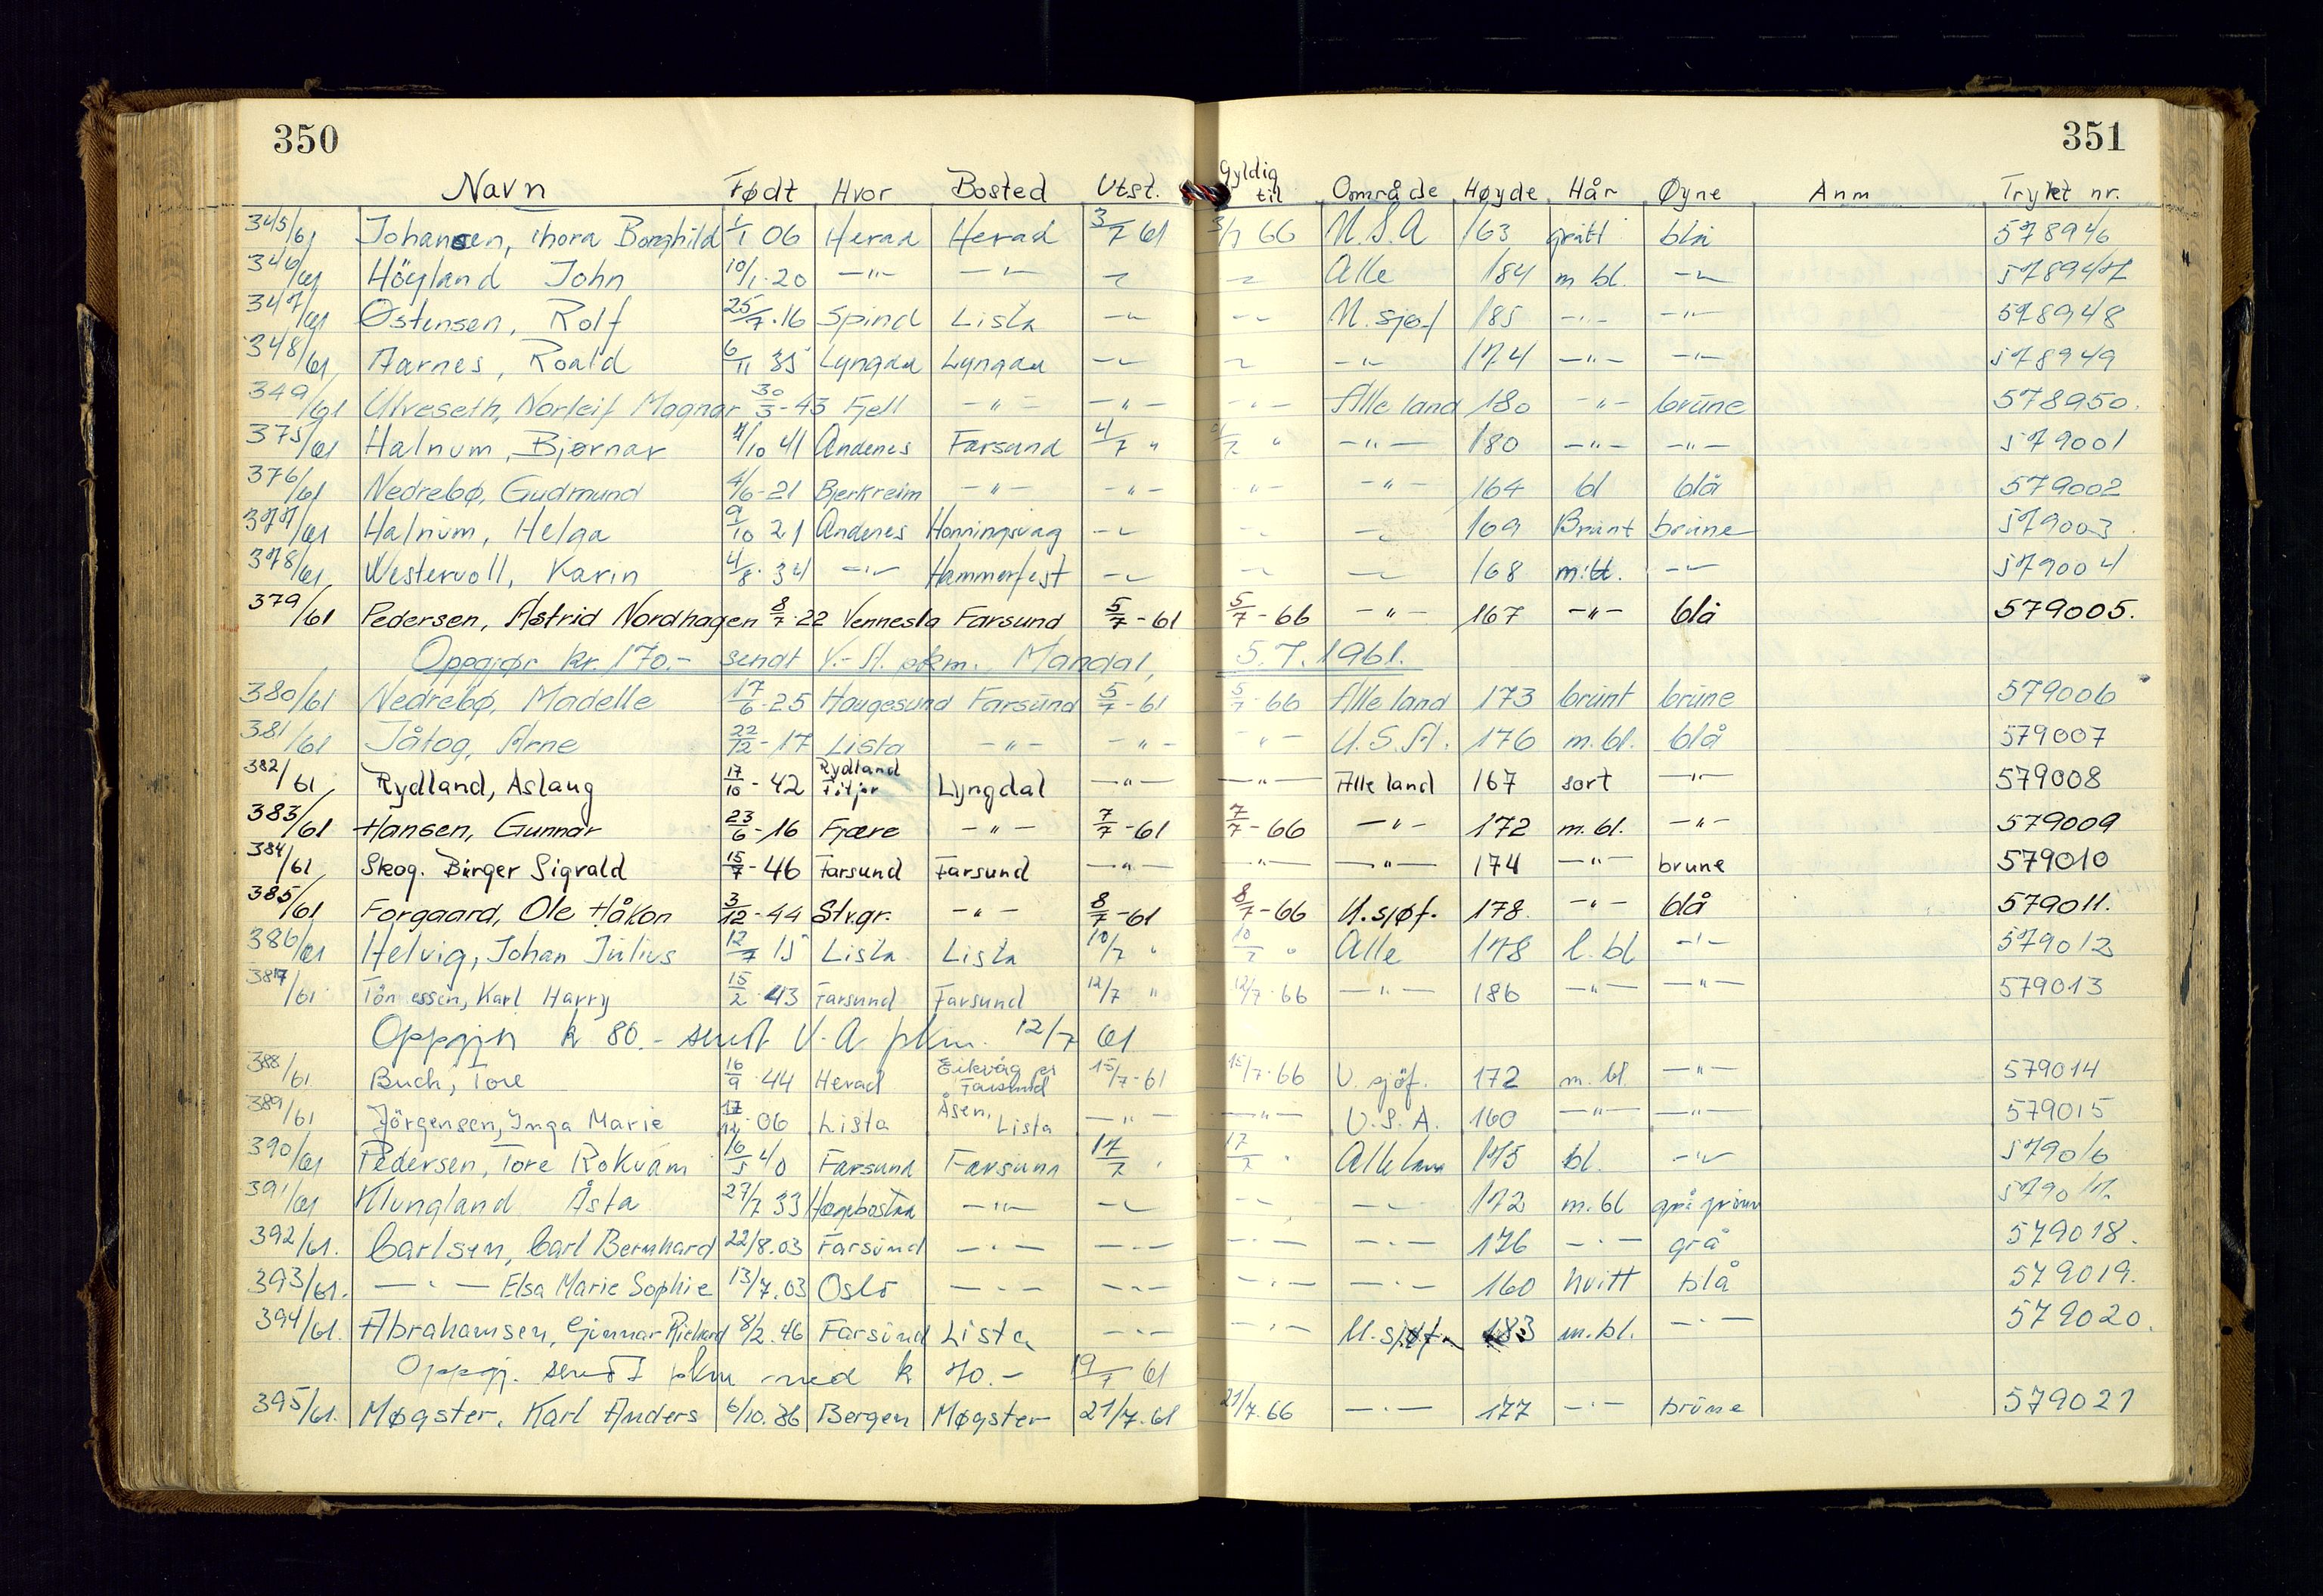 350
351
Navn Født Hvor Bosted Utst. Gyldig til Område Høyde Hår Øyne Anm Trykt nr.
345/61 Johansen, Thora Borghild 1/1 06 Herad Herad 3/7 61 3/7 66 U.S.A 163 grått blå 578946
346/61 Höyland John 10/1.20 —"— —"— —"— —"— Alle 184 m bl. —"— 578947
347/61 Østensen, Rolf 25/7.16 Spind Lista —"— —"— U. sjøf 185 —"— —"— 578948
348/61 Aarnes, Roald 6/11 35 Lyngdal Lyngdal —"— —"— —"— 174 —"— —"— 578949
349/61 Ulveseth, Norleif Magnar 30/3-43 Fjell —"— —"— —"— Alle land 180 —"— brune 578950.
375/61 Halnum, Bjørnar 4/10 41 Andenes Farsund 4/7 " 4/7 " —"— 180 —"— —"— 579001
376/61 Nedrebø, Gudmund 4/6-21 Bjerkreim —"— —"— —"— —"— 164 bl blå 579002
377/61 Halnum, Helga 9/10 21 Andenes Honningsvag —"— —"— —"— 169 Brunt brune 579003.
378/61 Westervoll, Karin 4/8.34 —"— Hammerfest —"— —"— —"— 168 m:tt. —"— 579004
379/61 Pedersen, Astrid Nordhagen 8/7.22 Vennesla Farsund 5/7-61 5/7-66 —"— 167 —"— blå 579005.
Oppgjør kr. 170.- sendt V.-A. pkm. Mandal, 5.7.1961.
380/61 Nedrebø, Madelle 17/6-25 Haugesund Farsund 5/7-61 5/7-66 Alle land 173 brunt brune 579006
381/61 Jåtog, Arne 22/12-17 Lista —"— —"— —"— U.S.A. 176 m.bl. blå 579007
382/61 Rydland, Aslaug 17/10-42 Rydland Fitjar Lyngdal —"— —"— Alle land 167 sort —"— 579008
383/61 Hansen, Gunnar 23/6-16 Fjære —"— 7/7-61 7/7-66 —"— 172 m.bl. —"— 579009
384/61 Skog. Birger Sigvald 15/7-46 Farsund Farsund —"— —"— —"— 174 —"— brune 579010
385/61 Forgaard, Ole Håkon 3/12-44 Stv.gr. —"— 8/7-61 8/7-66 U.sjøf. 178. —"— blå 579011.
386/61 Helvig, Johan Julius 12/7 15 Lista Lista 10/7 " 10/7 " Alle 178 l.bl —"— 579012
387/61 Tönnessen, Karl Harry 15/2.43 Farsund Farsund 12/7 " 12/7.66 —"— 186 —"— —"— 579013
Oppgjn k 80.- sendt V.A. pkm. 12/7 61
388/61 Buch, Tore 16/9.44 Herad Eikvåg pr Farsund 15/7-61 15/7.66 U. sjöf. 172 m. bl. —"— 579014
389/61 Jörgensen, Inga Marie 17/12.06 Lista Åsen, Lista —"— —"— U.S.A. 160 —"— —"— 579015
390/61 Pedersen, Tore Rokvam 16/5 40 Farsund Farsund 17/7 " 17/7 " Alle land 175 bl. —"— 579016
391/61 Klungland Åsta 27/7 33 Hægebostad —"— —"— —"— —"— 172 m.bl grå grønn 579017.
392/61. Carlsen, Carl Bernhard 22/8.03 Farsund —"— —"— —"— —"— 176 —"— grå 579018.
393/61. —"— Elsa Marie Sophie 13/7.03 Oslo —"— —"— —"— —"— 160 hvitt blå 579019.
394/61. Abrahamsen, Gunnar Richard 8/2.46 Farsund Lista —"— —"— U.sjøf. 183 m.bl. —"— 579020.
Oppgj. sendt pkm med k 70.- 19/7 61
395/61. Møgster, Karl Anders 6/10.36 Bergen Møgster 21/7.61 21/7.66 —"— 177 —"— brune 579021